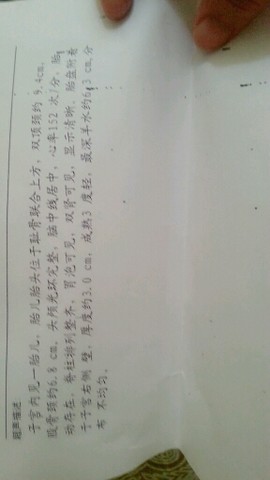 超声描述
子宫内见一胎儿，胎儿胎头位于耻骨联合上方，双顶颈约 9.4cm，
股骨颈约6.8 cm，头颅光环完整，脑中线居中，心率152 次/分，胎
动存在，脊柱排列整齐，胃泡可见，双肾可见，显示清晰，胎盘附着
于子宫右侧 壁，厚度约3.0 cm，成熟3 度轻，最深羊水约6.3 cm,分
布 不均匀。